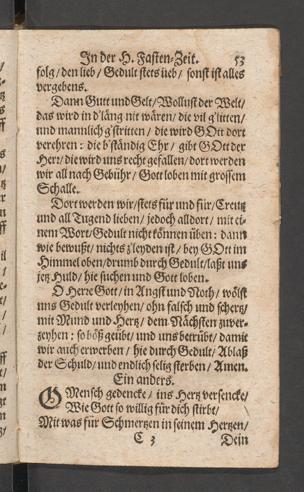 In der H. Fasten-Zeit. 53
folg / den lieb / Gedult stets üeb / sonst ist alles
vergebens.
Dann Gutt und Gelt / Wollust der Welt /
das wird in d'läng nit wären / die vil g'litten /
und mannlich g'stritten / die wird GOtt dort
verehren : die b'ständig Ehr / gibt GOtt der
Herr / die wird uns recht gefallen / dort werden
wir all nach Gebühr / Gott loben mit grossem
Schalle.
Dort werden wir / stets für und für / Creutz
und all Tugend lieben / jedoch alldort / mit ei-
nem Wort / Gedult nicht können üben : dann
wie bewußt / nichts z'leyden ist / bey GOtt im
Himmel oben / drumb durch Gedult / laßt uns
jetz Huld / hie suchen und Gott loben.
O Herre Gott / in Angst und Noth / wölst
uns Gedult verleyhen / ohn falsch und schertz /
mit Mund und Hertz / dem Nächsten zwer-
zeyhen : so böß geübt / und uns betrübt / damit
wir auch erwerben / hie durch Gedult / Ablaß
der Schuld / und endlich selig sterben / Amen.
Ein anders.
O Mensch gedencke / ins Hertz versencke /
Wie Gott so willig für dich stirbt /
Mit was für Schmertzen in seinem Hertzen /
C 3 Dein